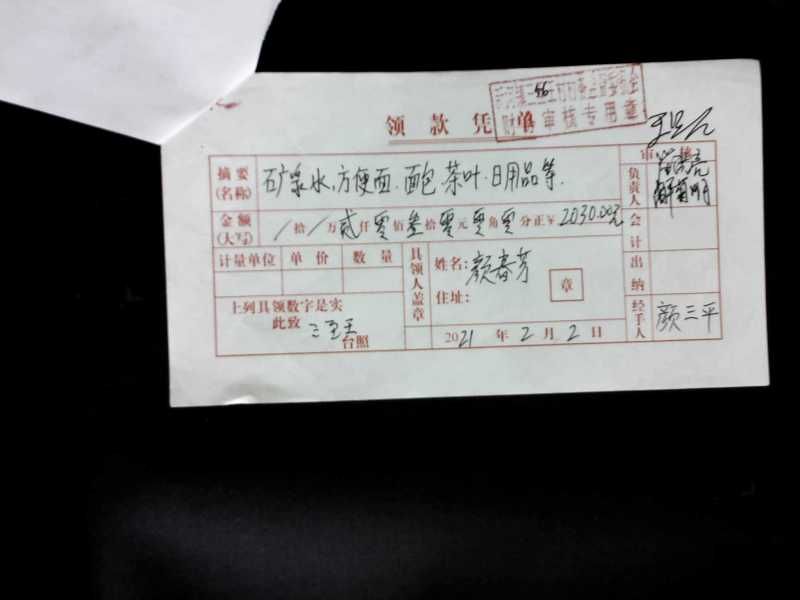 领款凭单
财务审核专用章
审核
摘要(名称) 石广泉水,方便面.面包 茶叶.日用品等.
负责人
金额(大写) / 拾 / 万 贰 仟 零 佰 叁 拾 零 元 零 角 零 分正¥2030.00元
会计
计量单位 单价 数量
具领人盖章
姓名: 颜春芳
住址:
章
出纳
上列具领数字是实
此致
台照
2021 年 2 月 2 日
经手人 颜三平